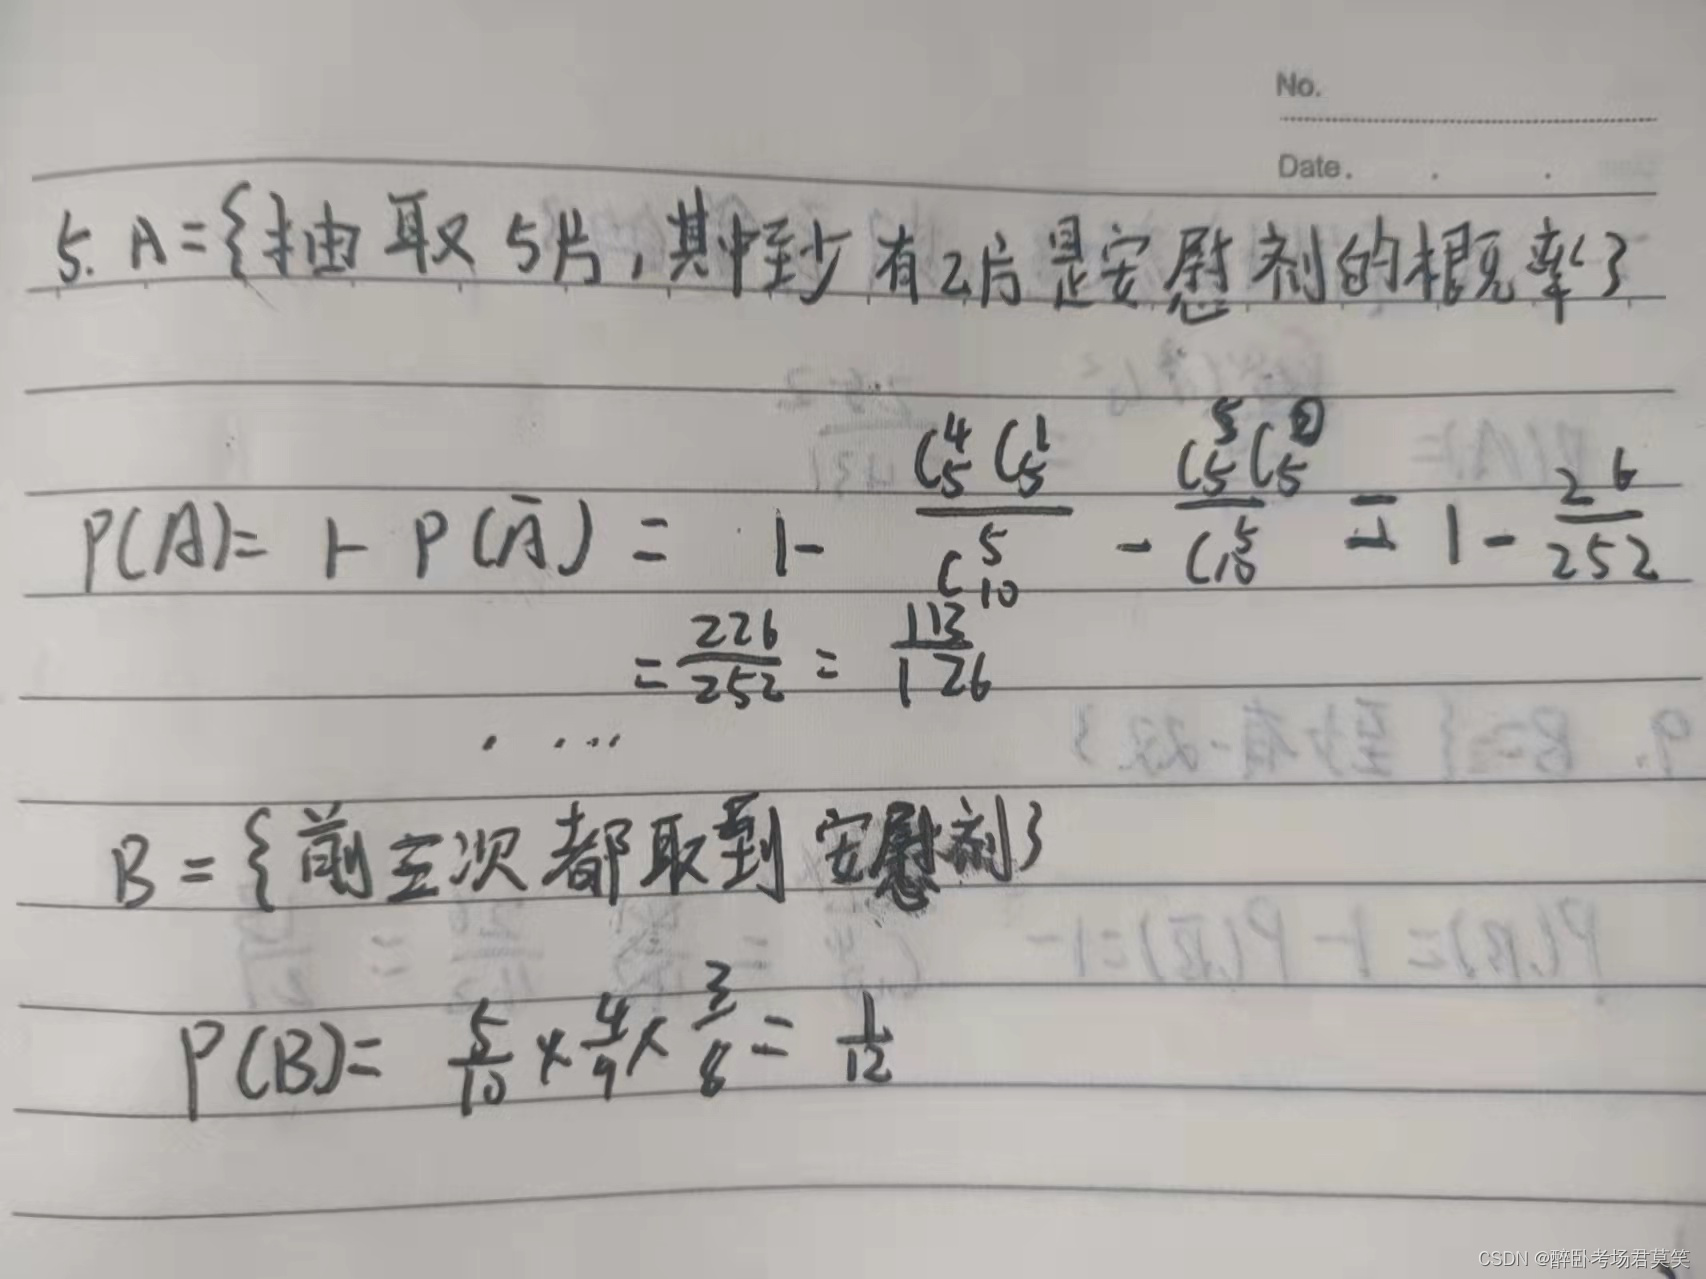 No.
Date.
5. A={抽取5片,其中至少有2片是安慰剂的概率}
P(A)= 1- P(Ā) = 1- C₅⁴C₅¹/C₁₀⁵ - C₅⁵C₅⁰/C₁₀⁵ = 1 - 26/252
= 226/252 = 113/126
. ...
B = {前三次都取到安慰剂}
P(B)= 5/10 × 4/9 × 3/8 = 1/12
CSDN @醉卧考场君莫笑